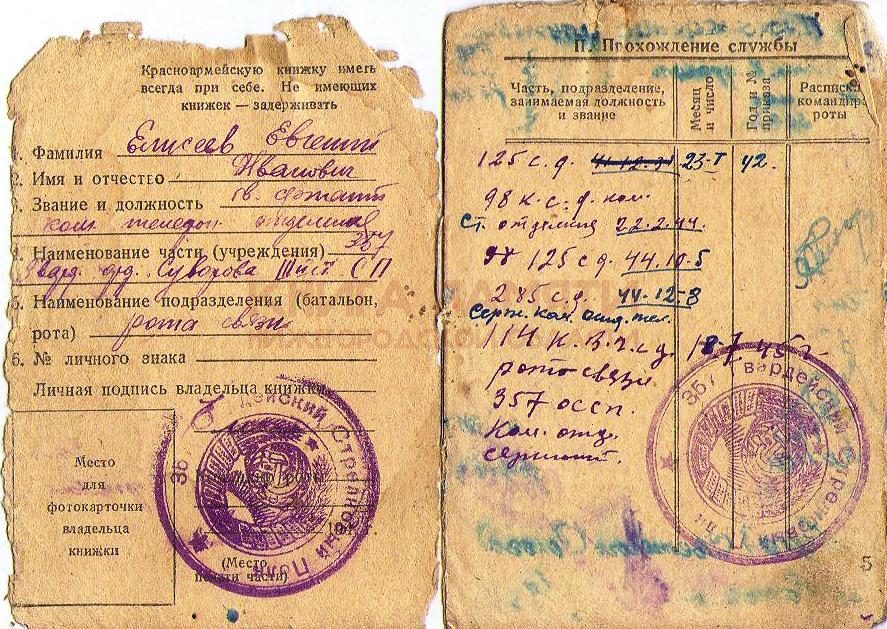 Красноармейскую книжку иметь
всегда при себе. Не имеющих
книжек — задерживать
1. Фамилия Елисеев Евгений
2. Имя и отчество Иванович
3. Звание и должность гв. сержант
ком. телефон. отделения
4. Наименование части (учреждения) 357
гвард. орд. Суворова III ст. СП
5. Наименование подразделения (батальон,
рота) рота связи
6. № личного знака
Личная подпись владельца книжки
Место
для
фотокарточки
владельца
книжки
(Место
печати части)
Стрелковый Полк
II. Прохождение службы
Часть, подразделение,
занимаемая должность
и звание
Месяц
и число
Год и №
приказа
Расписка
командира
роты
125 с. д. 23-I 42.
98 к. с. д. ком.
ст. отделения 22.2.44.
125 с д. 44.10.5
285 с. д. 44-12-8
серж. ком. отд. тел.
114 18-7 45 г.
рота связи.
357 осcп.
Ком. отд.
сержант.
357 Гвардейский Стрелковый
5